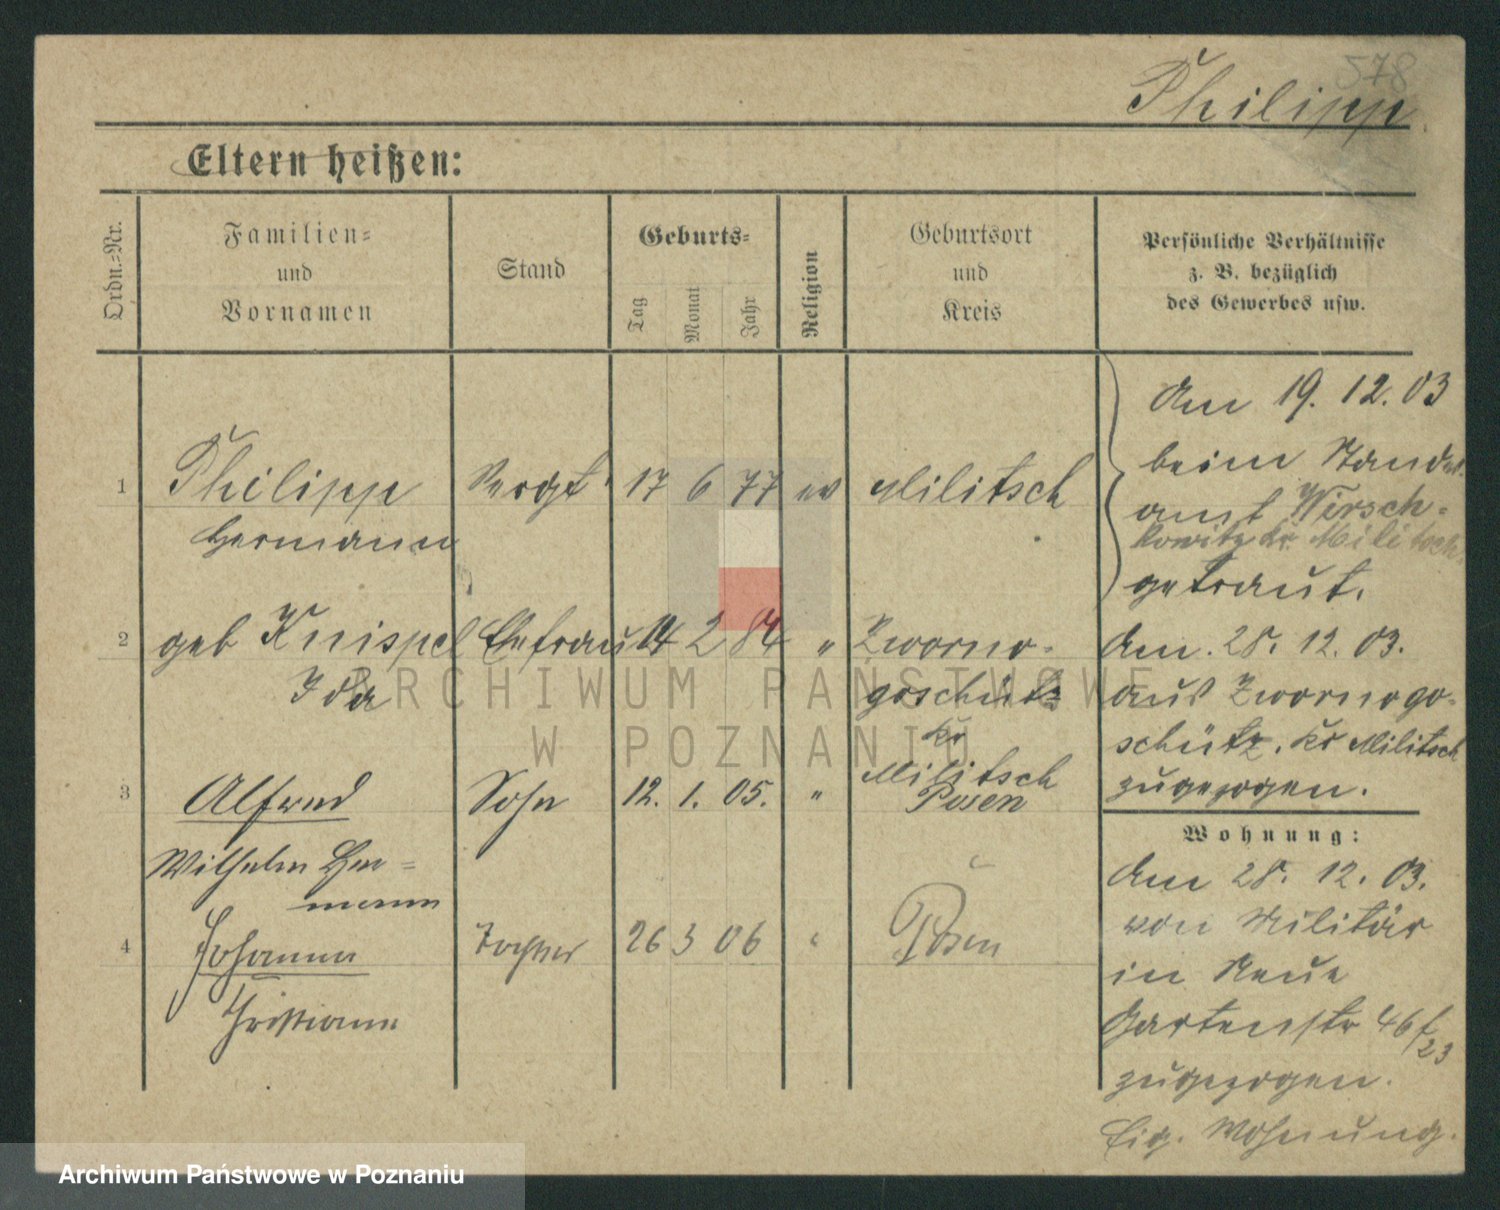 578
Philipp
Eltern heißen:
Ordn.-Nr.
Familien-
und
Vornamen
Stand
Geburts-
Tag
Monat
Jahr
Religion
Geburtsort
und
Kreis
Persönliche Verhältnisse
z. B. bezüglich
des Gewerbes usw.
1 Philipp Sergt. 17 6 77 ev Militsch
Hermann
2 geb Knispel Ehefrau 14 2 84 " Zworno-
Ida goschütz
Kr
Militsch
3 Alfred Sohn 12. 1. 05. " Posen
Wilhelm Her-
mann
4 Johanna Tochter 26 3 06 " Posen
Christiane
Am 19. 12. 03
beim Standes
amt Wirsch-
kowitz Kr. Militsch
getraut.
Am 28. 12. 03.
aus Zwornogo-
schütz, Kr Militsch
zugezogen.
Wohnung:
Am 28. 12. 03.
von Militär
in Neue
Gartenstr 46 f
23
zugezogen.
Eig. Wohnung.
ARCHIWUM PAŃSTWOWE
W POZNANIU
Archiwum Państwowe w Poznaniu